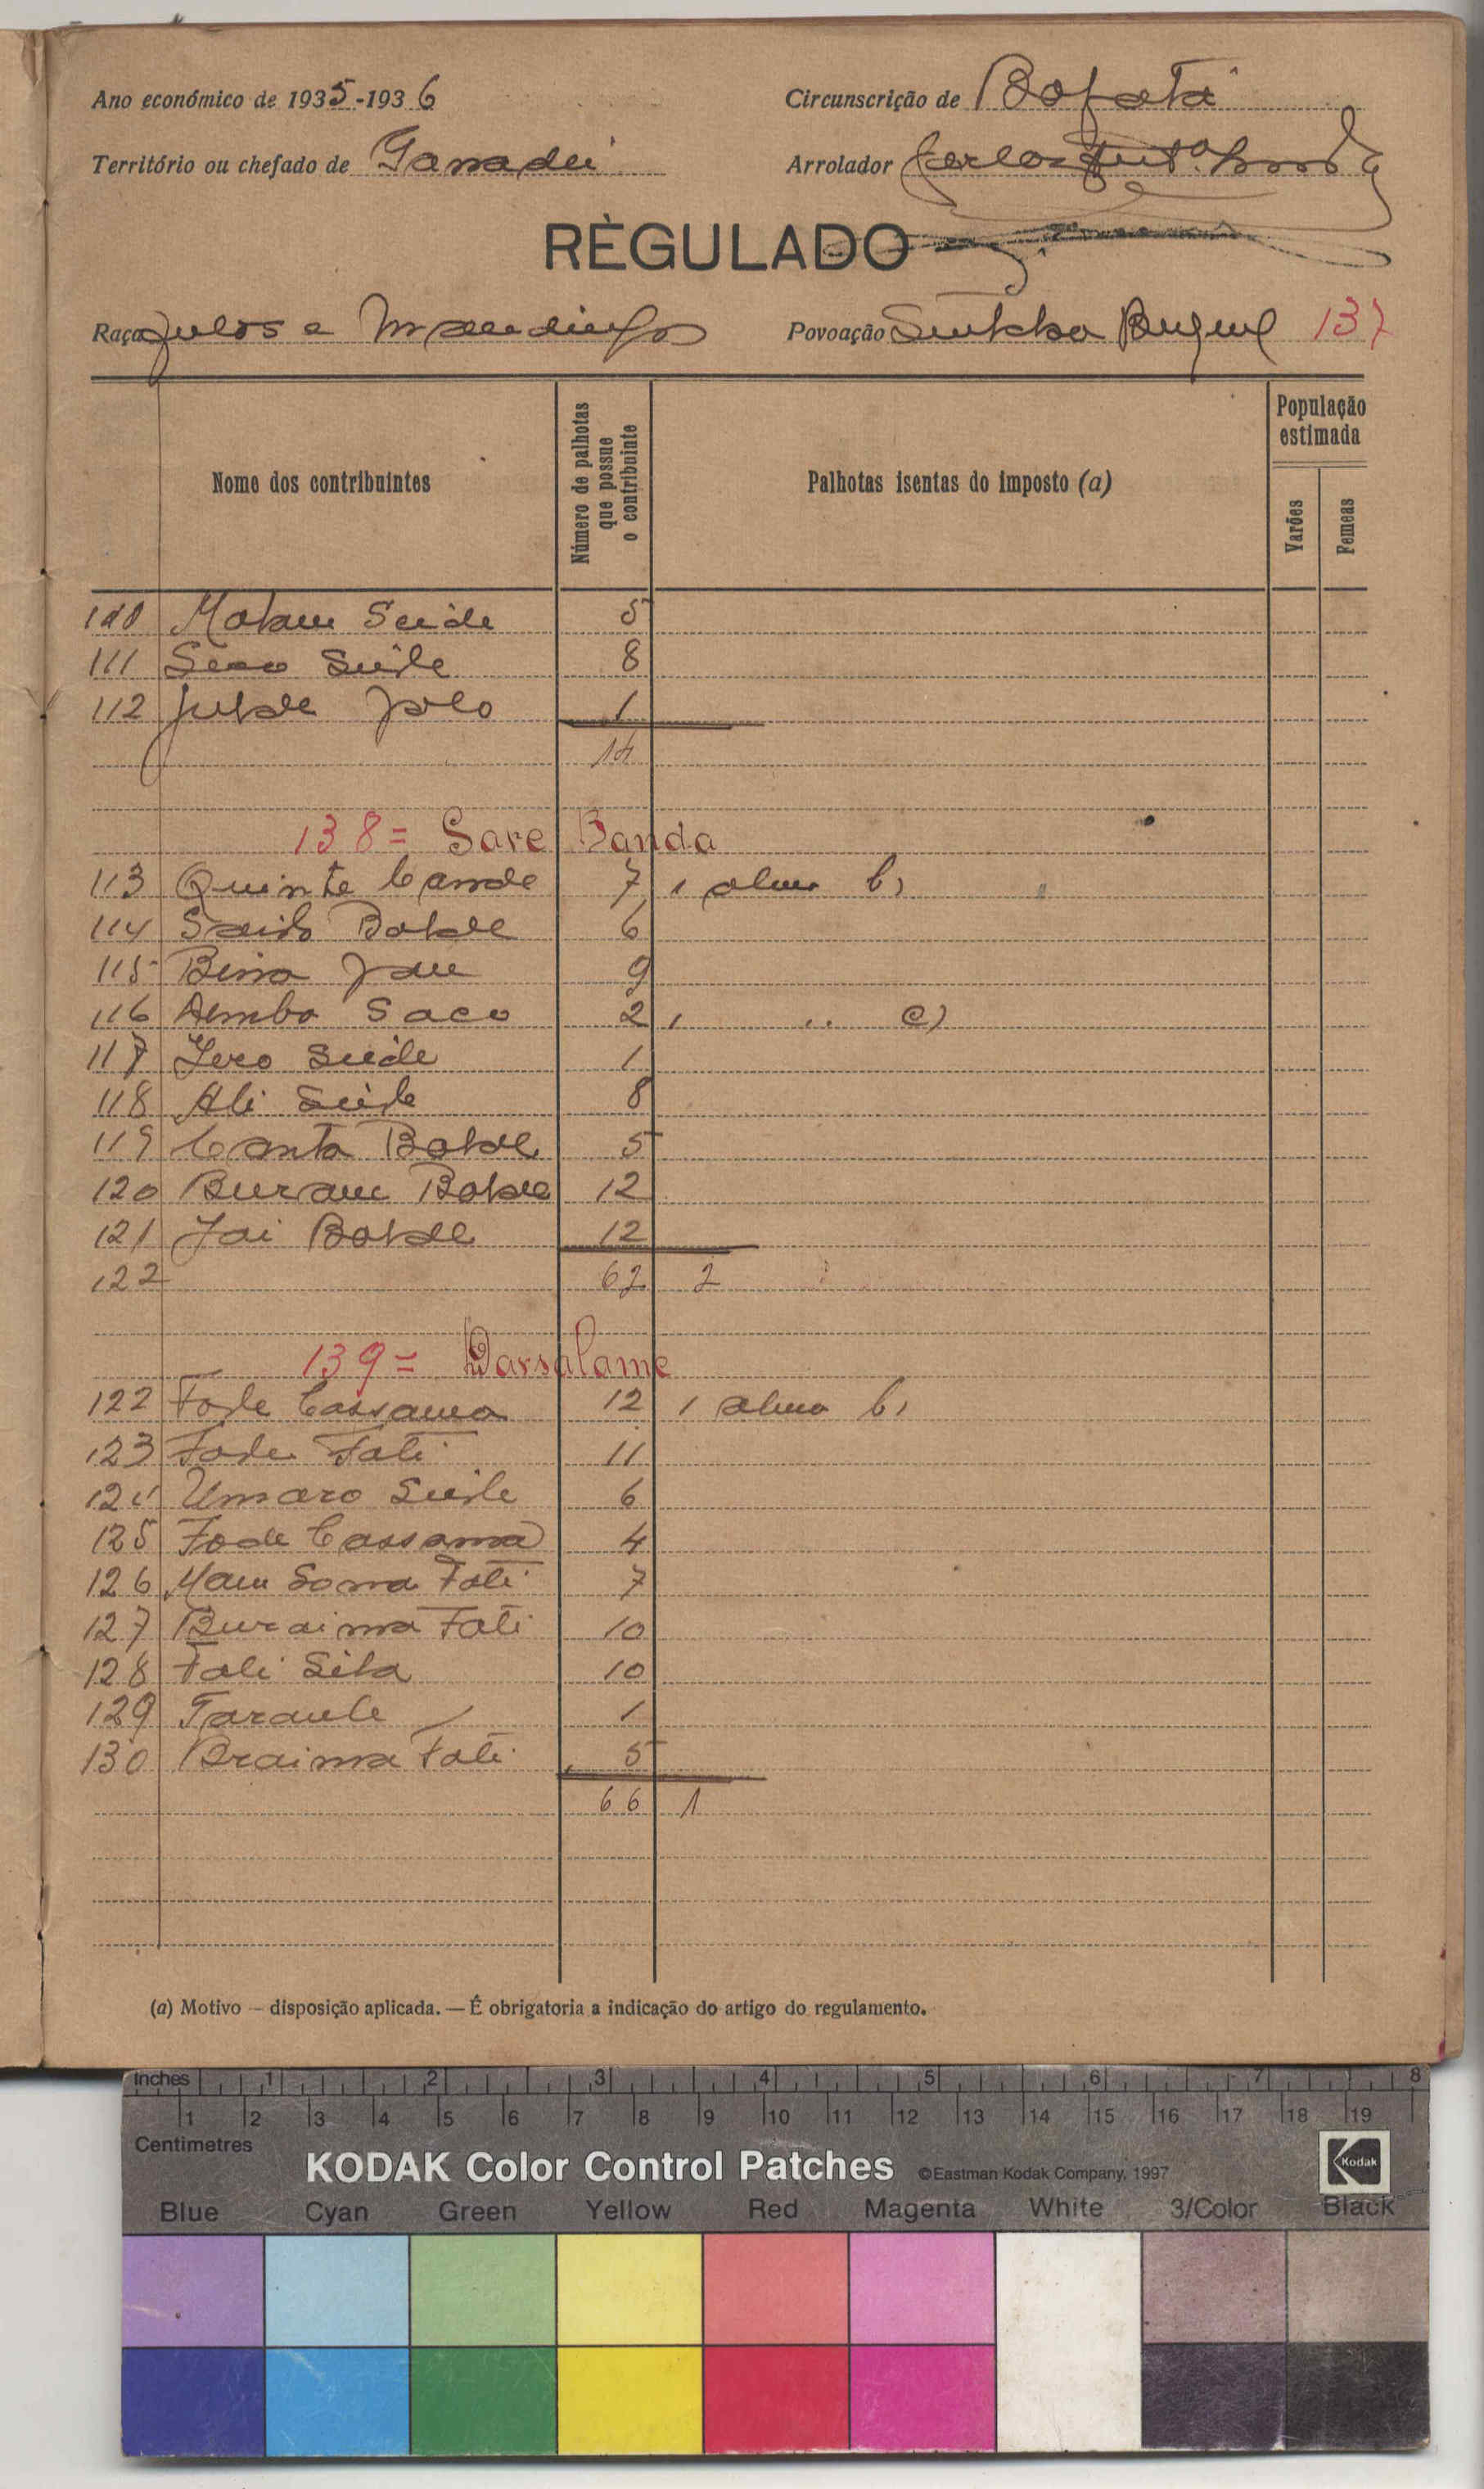 Ano económico de 1935-1936
Circunscrição de Bafatá
Território ou chefado de Ganadu
Arrolador Carlos
REGULADO
Raça Fulos e Mandingos
Povoação Sintcha 137
Nome dos contribuintes
Número de palhotas que possue o contribuinte
Palhotas isentas do imposto (a)
População estimada
Varões
Femeas
110 Malam Seide 5
111 Seco Seide 8
112 Jolo 1
14
138= Sare Banda
113 Quinte Cande 7 1 b)
114 Saido Balde 6
115 Jau 9
116 Saco 2 1 " c)
117 Iero Seide 1
118 Ali Seide 8
119 Canta Balde 5
120 Buram Balde 12
121 Jai Balde 12
122 62 2
139= Darsalame
122 Fode Cassama 12 1 b)
123 Fode Fati 11
124 Umaro Seide 6
125 Fode Cassama 4
126 Fati 7
127 Buraima Fati 10
128 Fali Sila 10
129 1
130 Braima Fati 5
66 1
(a) Motivo — disposição aplicada. — É obrigatoria a indicação do artigo do regulamento.
Inches 1 2 3 4 5 6 7 8
1 2 3 4 5 6 7 8 9 10 11 12 13 14 15 16 17 18 19
Centimetres
KODAK Color Control Patches ©Eastman Kodak Company, 1997 Kodak
Blue Cyan Green Yellow Red Magenta White 3/Color Black